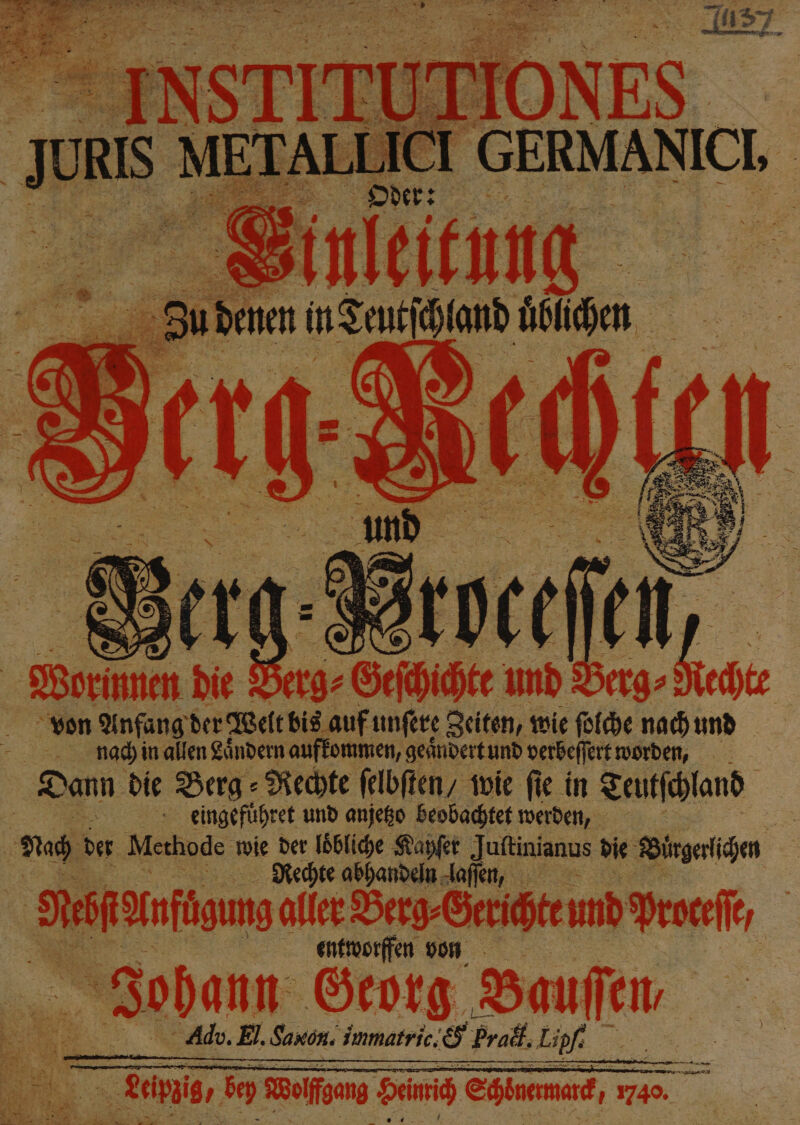 7437
INSTITUTIONES
JURIS METALLICI GERMANICI,
Oder:
Einleitung
Zu denen in Teutschland üblichen
Berg-Rechten
und
Berg-Processen,
Worinnen die Berg-Geschichte und Berg-Rechte
von Anfang der Welt bis auf unsere Zeiten, wie solche nach und
nach in allen Ländern aufkommen, geändert und verbessert worden,
Dann die Berg-Rechte selbsten/ wie sie in Teutschland
eingeführet und anjetzo beobachtet werden,
Nach der Methode wie der löbliche Kayser Justinianus die Bürgerlichen
Rechte abhandeln lassen,
Nebst Anfügung aller Berg-Gerichte und Processe,
entworffen von
Johann Georg Baussen/
Adv. El. Saxon. immatric. & Pract. Lips.
Leipzig/ bey Wolffgang Heinrich Schönermarck, 1740.